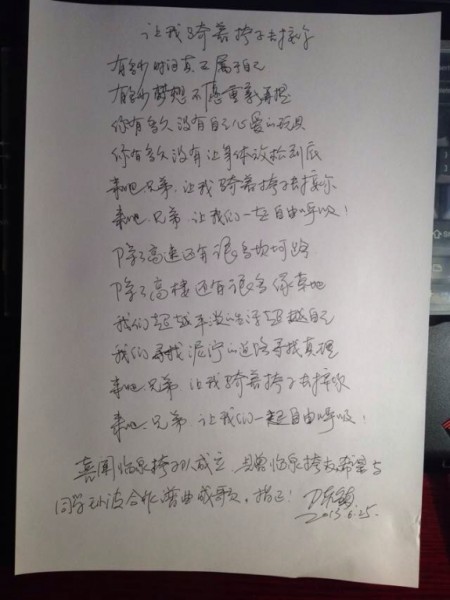 让我骑着挎子去接你
有多少时间真正属于自己
有多少梦想不愿重新再提
你有多久没有自己心爱的玩具
你有多久没有让身体放松到底
来吧兄弟.让我骑着挎子去接你
来吧.兄弟.让我们一起自由呼吸!
除了高速还有很多坎坷路
除了高楼还有很多绿草地
我们超越平淡的生活超越自己
我们寻找泥泞的道路寻找真理
来吧.兄弟 让我骑着挎子去接你
来吧.兄弟.让我们一起自由呼吸!
喜闻临泉挎子队成立 临泉挎友希望与
同学 合作谱曲成歌.指正!
2013.6.25.